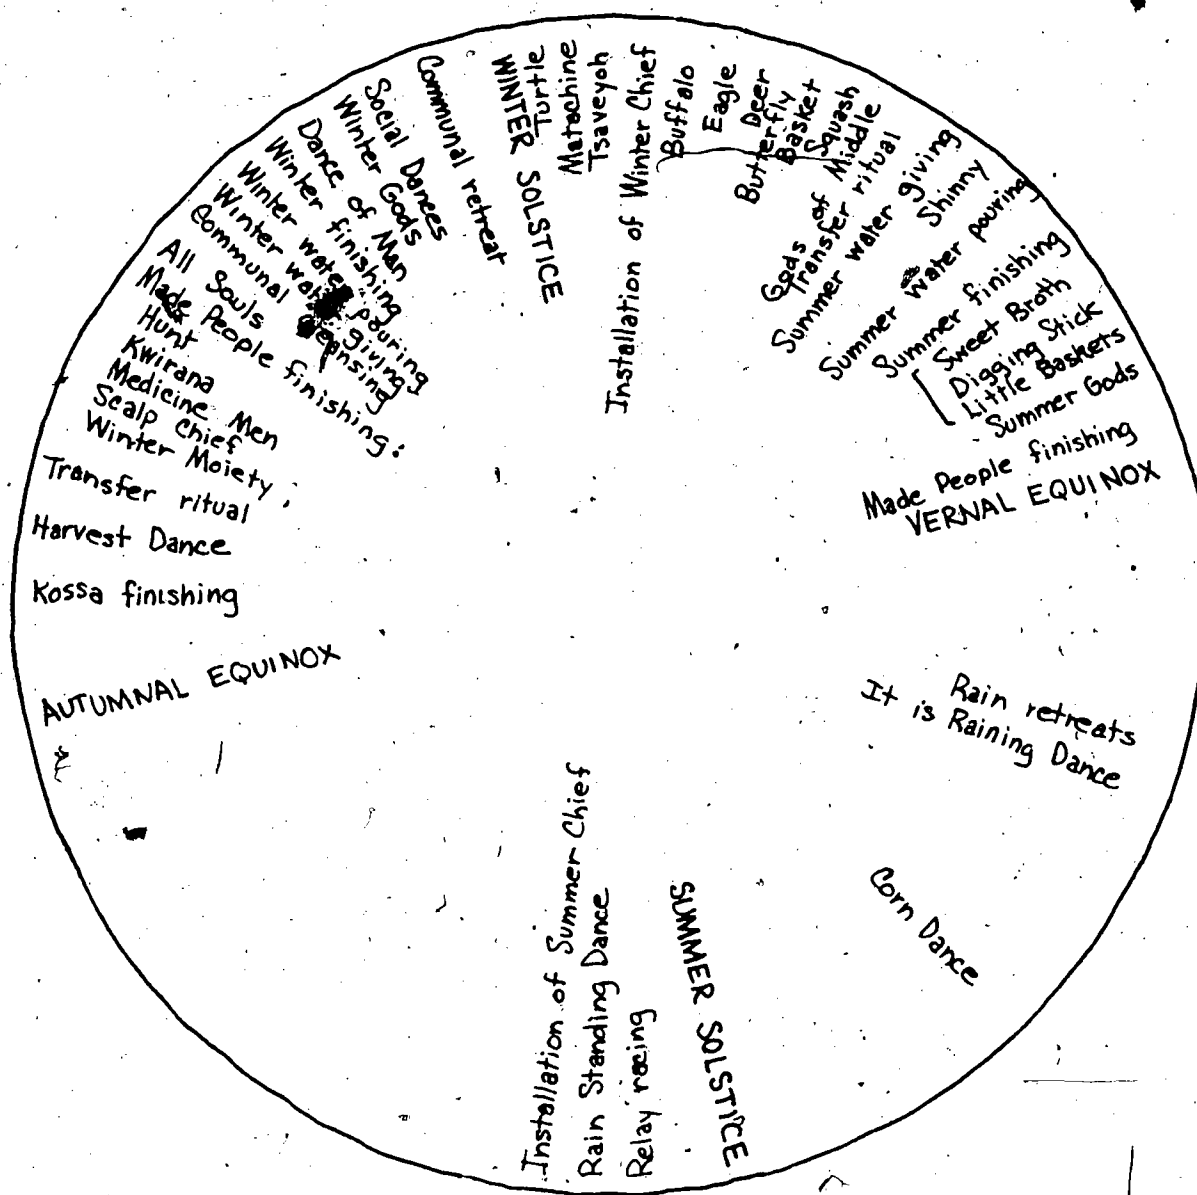 WINTER SOLSTICE
Turtle
Matachine
Tsaveyoh
Installation of Winter Chief
Buffalo
Eagle
Deer
Butterfly
Basket
Squash
Gods of Middle
Transfer ritual
Summer water giving
Shinny
Summer water pouring
Summer finishing
Sweet Broth
Digging Stick
Little Baskets
Summer Gods
Made People finishing
VERNAL EQUINOX
Rain retreats
It is Raining Dance
Corn Dance
SUMMER SOLSTICE
Relay racing
Rain Standing Dance
Installation of Summer Chief
AUTUMNAL EQUINOX
Kossa finishing
Harvest Dance
Transfer ritual
Winter Moiety
Scalp Chief
Medicine Men
Kwirana
Hunt
Made People finishing:
All Souls
Communal cleansing
Winter water giving
Winter water pouring
Winter finishing
Dance of Man
Winter Gods
Social Dances
Communal retreat